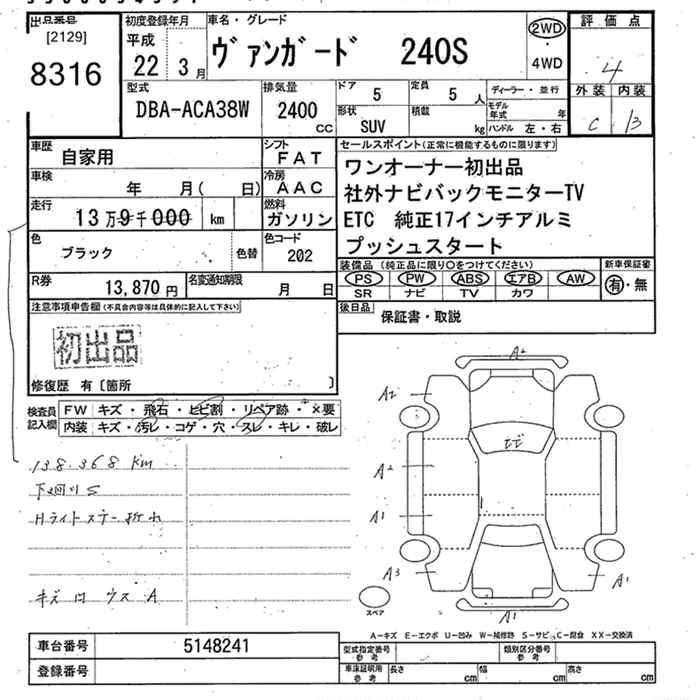 出品番号
[2129]
8316
初度登録年月
平成
22 3月
車名・グレード
ヴァンガード 240S
2WD
・
4WD
評価点
4
外装 内装
C B
型式
DBA-ACA38W
排気量
2400
cc
ドア
5
定員
5 人
形状
SUV
積載
kg
ディーラー・並行
モデル年式 年
ハンドル 左・右
車歴
自家用
シフト
FAT
車検
年 月( 日)
冷房
AAC
走行
13万9千000 km
燃料
ガソリン
色
ブラック
色替
色コード
202
R券
13,870円
名変通知期限
月 日
セールスポイント(正常に機能するものに限ります)
ワンオーナー初出品
社外ナビバックモニターTV
ETC 純正17インチアルミ
プッシュスタート
装備品 (純正品に限り○をつけてください)
新車保証書
PS PW ABS エアB AW
有・無
SR ナビ TV カワ
後日品
保証書・取説
注意事項申告欄(不具合内容等は具体的に記入して下さい)
初出品
修復歴 有〔箇所 〕
検査員
記入欄
FW キズ・飛石・ヒビ割・リペア跡・×要
内装 キズ・汚レ・コゲ・穴・スレ・キレ・破レ
138.368 km
下回りS
Hライトステー折れ
キズ凹 ウス A
A2
A2
A2
A1
A3
A1
A1
スペア
A-キズ E-エクボ U-凹み W-補修跡 S-サビ C-腐食 XX-交換済
車台番号 5148241
登録番号
型式指定番号
参考
類別区分番号
参考
車庫証明用
参考
長さ cm 幅 cm 高さ cm